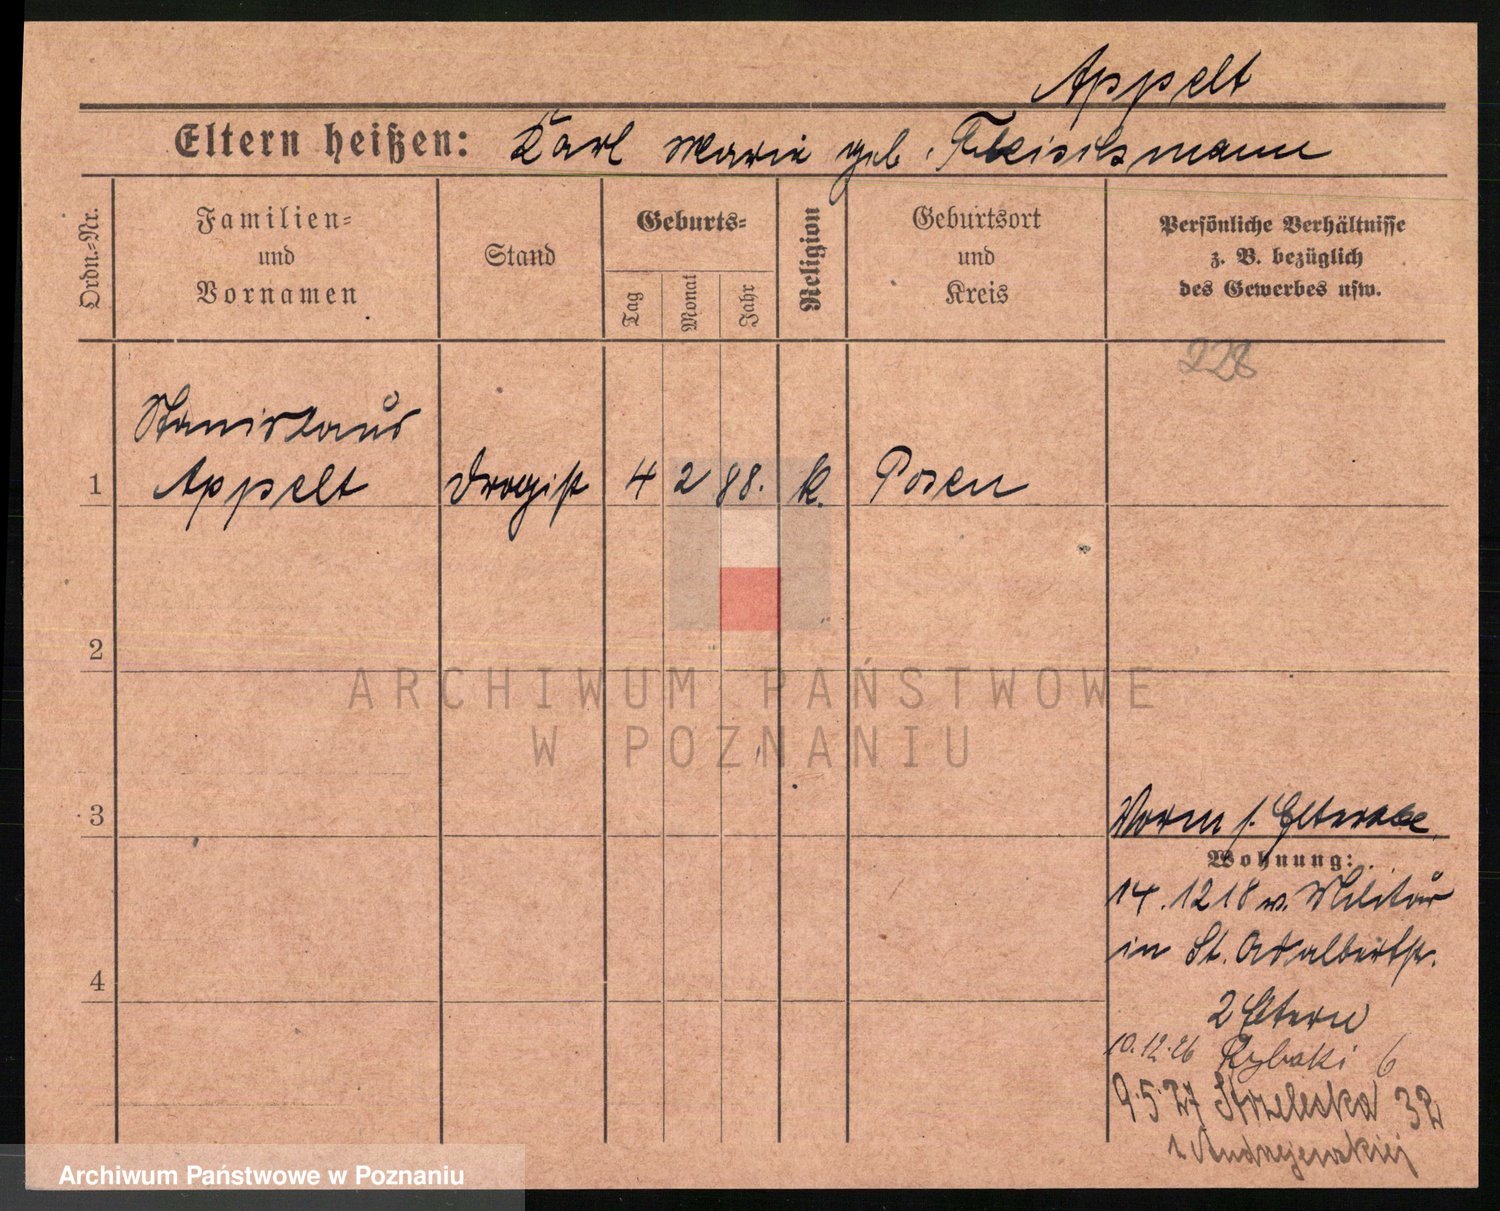 Appelt
Eltern heißen: Karl Marie geb. Fleischmann
Ordn.-Nr.
Familien- und Vornamen
Stand
Geburts-
Tag
Monat
Jahr
Religion
Geburtsort und Kreis
Persönliche Verhältnisse
z. B. bezüglich
des Gewerbes usw.
228
Stanislaus
1 Appelt Drogist 4 2 88. k. Posen
2
ARCHIWUM PAŃSTWOWE
W POZNANIU
3
Wohnung:
14.12 18 v. Militär
in St. Adalbertstr.
4
2 Eltern
10.12.26 Rybaki 6
9.5.27 Strzelecka 32
Andrzejewskiej
Archiwum Państwowe w Poznaniu